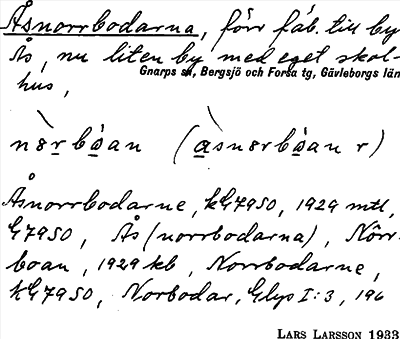 Åsnorrbodarna, förr fäb. till by
Ås, nu liten by med eget skol-
Gnarps sn, Bergsjö och Forsa tg, Gävleborgs län
hus,
nòrbóan (àsnorbóan r)
Åsnorrbodarne, kG7950, 1929 mtl,
G7950, Ås (norrbodarna), Norr-
boan, 1929 kb, Norrbodarne,
kG7950, Norbodar, Glys I:3, 196
LARS LARSSON 1933